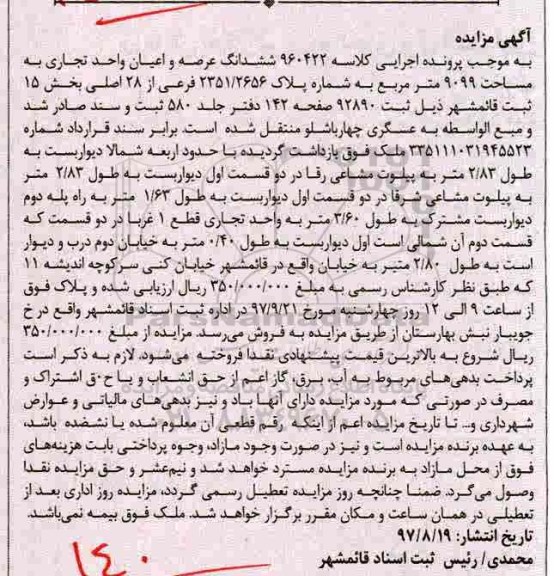 آگهی مزایده
به موجب پرونده اجرایی کلاسه ۹۶۰۴۲۲ ششدانگ عرصه و اعیان واحد تجاری به
مساحت ۹۰۹۹ متر مربع به شماره پلاک ۲۳۵۱/۲۶۵۶ فرعی از ۲۸ اصلی بخش ۱۵
ثبت قائمشهر ذیل ثبت ۹۲۸۹۰ صفحه ۱۴۲ دفتر جلد ۵۸۰ ثبت و سند صادر شد
و مبع الواسطه به عسگری چهارباشلو منتقل شده است. برابر سند قرارداد شماره
۳۳۵۱۱۱۰۳۱۹۴۵۵۲۳ ملک فوق بازداشت گردیده با حدود اربعه شمالا دیواریست به
طول ۲/۸۳ متر به پیلوت مشاعی رقا در دو قسمت اول دیواریست به طول ۲/۸۳ متر
به پیلوت مشاعی شرقا در دو قسمت اول دیواریست به طول ۱/۶۳ متر به راه پله دوم
دیواریست مشترک به طول ۳/۶۰ متر به واحد تجاری قطع ۱ غربا در دو قسمت که
قسمت دوم آن شمالی است اول دیواریست به طول ۰/۴۰ متر به خیابان دوم درب و دیوار
است به طول ۲/۸۰ متیر به خیابان واقع در قائمشهر خیابان کتی سرکوچه اندیشه ۱۱
که طبق نظر کارشناس رسمی به مبلغ ۳۵۰/۰۰۰/۰۰۰ ریال ارزیابی شده و پلاک فوق
از ساعت ۹ الی ۱۲ روز چهارشنبه مورخ ۹۷/۹/۲۱ در اداره ثبت اسناد قائمشهر واقع در خ
جویبار نبش بهارستان از طریق مزایده به فروش می‌رسد. مزایده از مبلغ ۳۵۰/۰۰۰/۰۰۰
ریال شروع به بالاترین قیمت پیشنهادی نقدا فروخته می‌شود. لازم به ذکر است
پرداخت بدهی‌های مربوط به آب، برق، گاز اعم از حق انشعاب و یا حق اشتراک و
مصرف در صورتی که مورد مزایده دارای آنها باد و نیز بدهی‌های مالیاتی و عوارض
شهرداری و... تا تاریخ مزایده اعم از اینکه رقم قطعی آن معلوم شده یا نشده باشد،
به عهده برنده مزایده است و نیز در صورت وجود مازاد، وجوه پرداختی بابت هزینه‌های
فوق از محل مازاد به برنده مزایده مسترد خواهد شد و نیم‌عشر و حق مزایده نقدا
وصول می‌گرد. ضمنا چنانچه روز مزایده تعطیل رسمی گردد، مزایده روز اداری بعد از
تعطیلی در همان ساعت و مکان مقرر برگزار خواهد شد. ملک فوق بیمه نمی‌باشد.
تاریخ انتشار: ۹۷/۸/۱۹
محمدی/ رئیس ثبت اسناد قائمشهر
۱۴۰